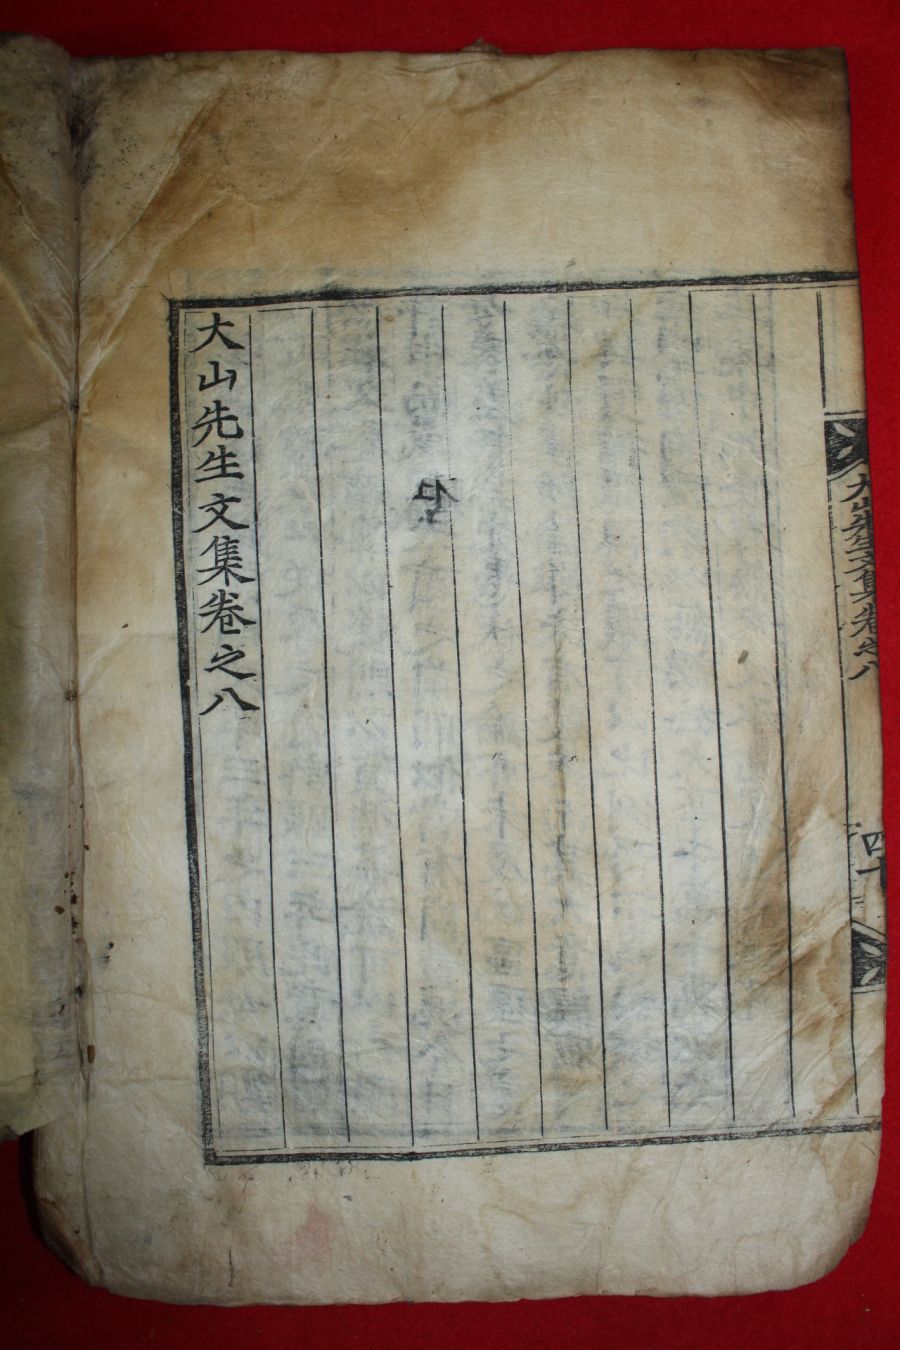 大山先生文集卷之八
四十
大山先生文集卷之八